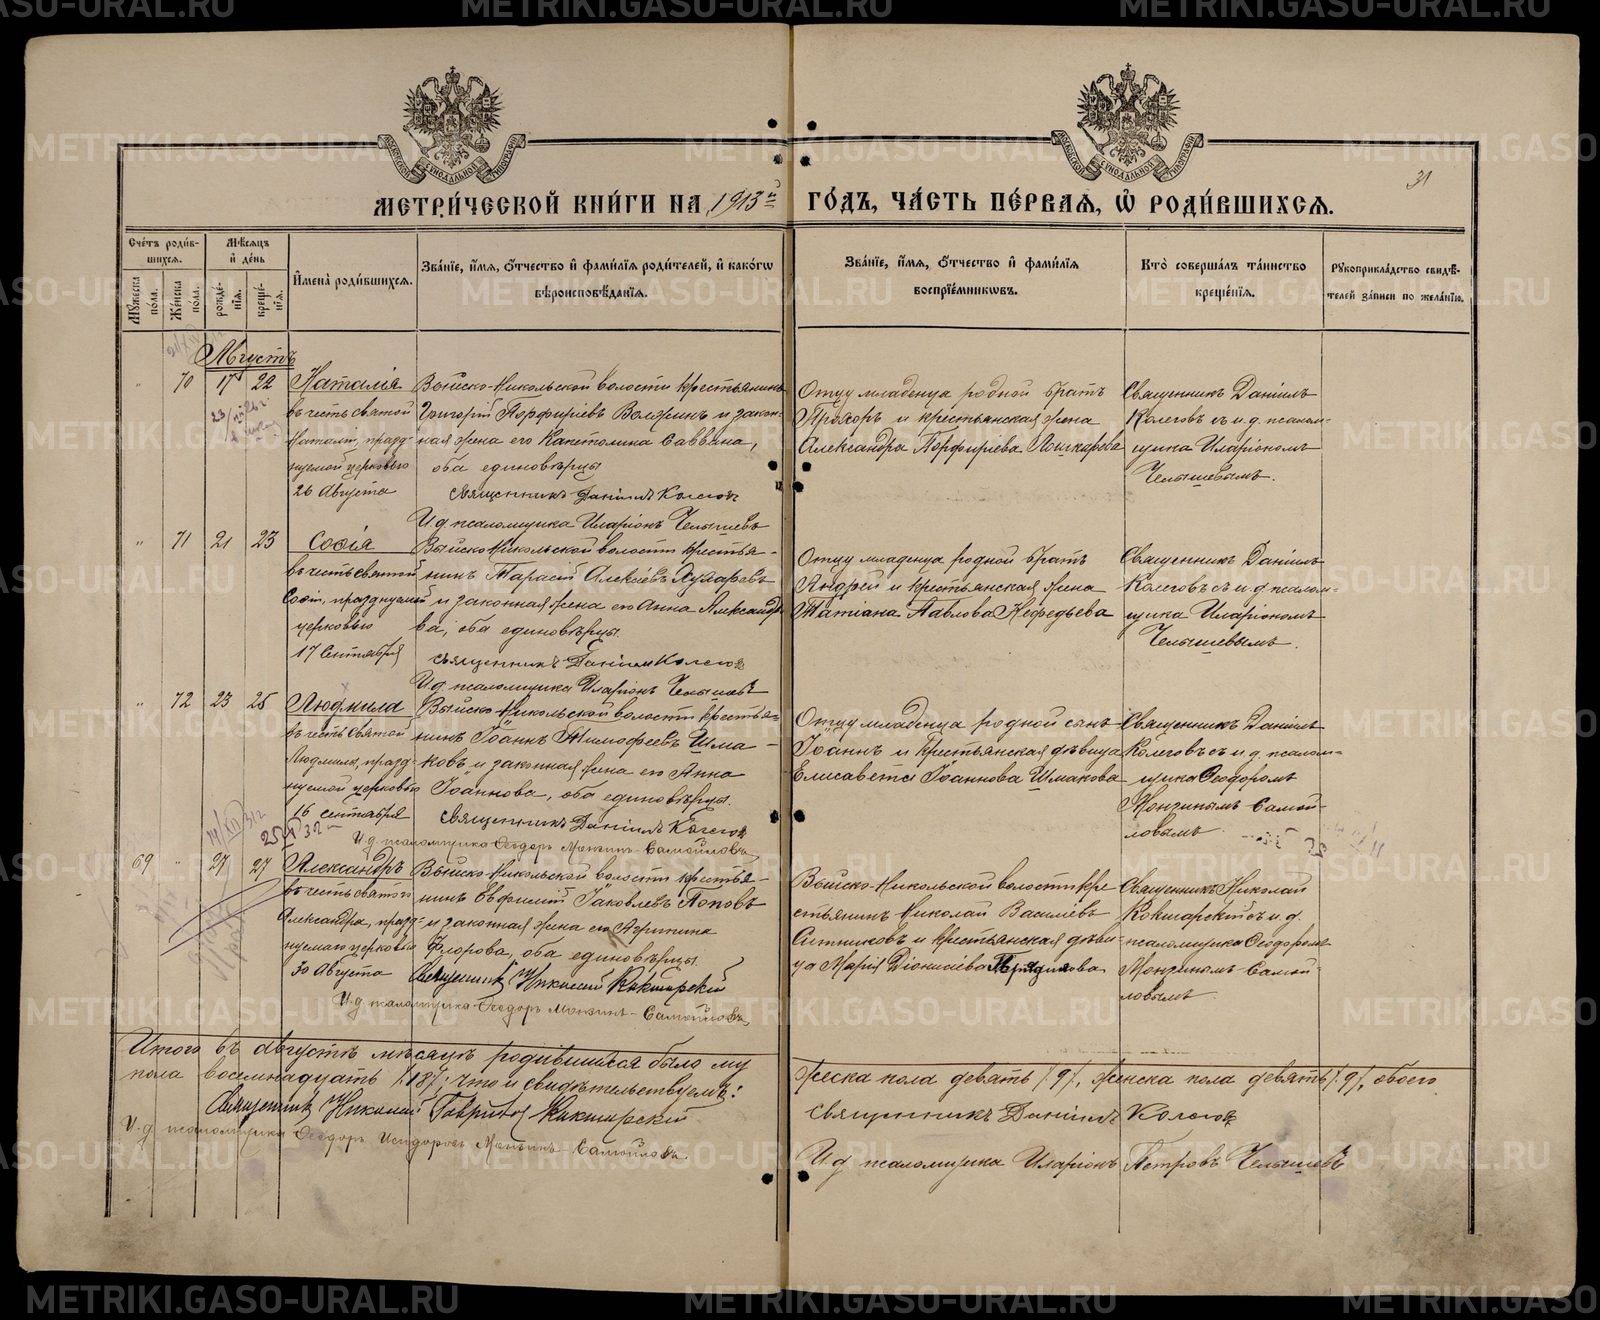 МЕТРИ́ЧЕСКОЙ КНИ́ГИ НА 1913й ГО́ДЪ, ЧА́СТЬ ПЕ́РВАЯ, Ѽ РОДИ́ВШИХСѦ.
31
Сче́тъ роди́вшихся.
Мѣ́сяцъ и де́нь
Мꙋ́жеска по́ла.
Же́нска по́ла.
рожде́нїя.
креще́нїя.
И҆мена̀ роди́вшихся.
Зва́нїе, и҆́мя, ѻ҆́тчество и҆ фами́лїя роди́телей, и҆ како́гѡ вѣроисповѣ́данїя.
Зва́нїе, и҆́мя, ѻ҆́тчество и҆ фами́лїя воспрїе́мникѡвъ.
Кто̀ соверша́лъ та́инство креще́нїя.
Рꙋкоприкла́дство свидѣ́телей за́писи по жела́нїю.
Августъ
" 70 17 22
Наталія
въ честь святой
Наталіи, празд-
нуемой церковью
26 Августа
Выйско-Никольской волости крестьянинъ
Григорій Порфиріевъ Воляринъ и закон-
ная жена его Капитолина Саввина,
оба единовѣрцы
Священникъ Даніилъ Колегов
И.д. псаломщика Иларіонъ Челышевъ
Отцу младенца родной братъ
Прохоръ и крестьянская жена
Александра Порфиріева Лошкарева
Священникъ Даніилъ
Колеговъ съ и.д. псалом-
щика Иларіономъ
Челышевымъ.
" 71 21 23
Софія
въ честь святой
Софіи, празднуемой
церковью
17 Сентября
Выйско-Никольской волости крестья-
нинъ Тарасій Алексѣевъ
и законная жена его Анна Александро-
ва, оба единовѣрцы.
Священникъ Даніилъ Колегов
И.д. псаломщика Иларіонъ Челышевъ
Отцу младенца родной братъ
Андрей и крестьянская жена
Татіана Павлова Нефедьева
Священникъ Даніилъ
Колеговъ съ и.д. псалом-
щика Иларіономъ
Челышевымъ.
" 72 23 25
Людмила
въ честь Святой
Людмилы, празд-
нуемой церковью
16 сентября
Выйско-Никольской волости крестья-
нинъ Іоаннъ Тимофеевъ Шма-
ковъ и законная жена его Анна
Іоаннова, оба единовѣрцы.
Священникъ Даніилъ Колегов
И.д. псаломщика Ѳеодоръ Монзинъ-Самойловъ
Отцу младенца родной сынъ
Іоаннъ и крестьянская дѣвица
Елисавета Іоаннова Шмакова
Священникъ Даніилъ
Колеговъ съ и.д. псалом-
щика Ѳеодоромъ
Монзинымъ-Самой-
ловымъ
69 " 27 27
Александръ
въ честь святаго
Александра, празд-
нуемаго церковью
30 Августа
Выйско-Никольской волости крестья-
нинъ Евфимій Іаковлевъ Поповъ
и законная жена его Агрипина
Флорова, оба единовѣрцы.
Священникъ Николай Кокшарскій
И.д. псаломщика Ѳеодоръ Монзинъ-Самойловъ
Выйско-Никольской волости кре
стьянинъ Николай Василіевъ
Ситниковъ и крестьянская дѣви-
ца Марія Діонисіева
Священникъ Николай
Кокшарскій съ и.д.
псаломщика Ѳеодоромъ
Монзинымъ-Самой-
ловымъ
Итого въ августѣ мѣсяцѣ родившихся было му
жеска пола девять /9/, женска пола девять /9/, обоего
пола восемнадцать /18/; что и свидѣтельствуемъ:
Священникъ Николай Гавриловъ Кокшарскій
Священникъ Даніилъ Колегов
И.д. псаломщика Ѳеодоръ Исидоровъ Монзинъ-Самойловъ.
И.д. псаломщика Иларіонъ Петровъ Челышевъ
METRIKI.GASO-URAL.RU